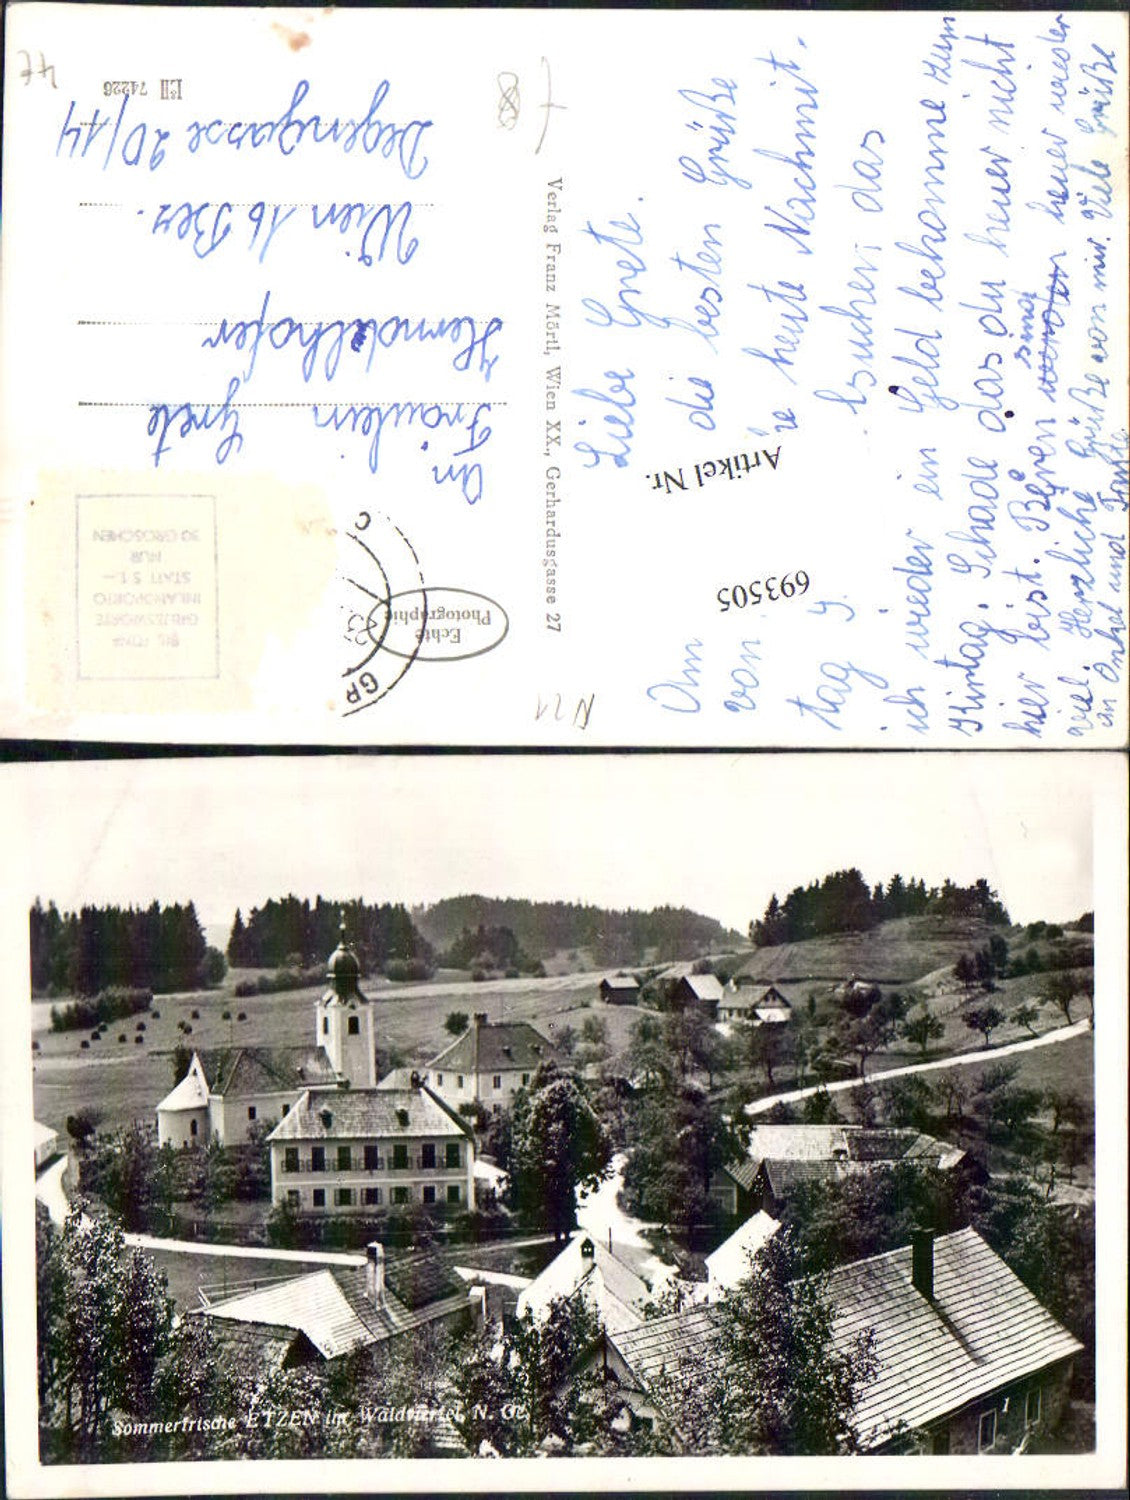 4€
LºII 74226
An
Fräulein Grete
Herndlhofer
Wien 16 Bez.
Degengasse 20/14
BIS 10X15
GRUSSWORTE
INLANDPORTO
STATT S 1.—
NUR
30 GROSCHEN
Echte
Photographie
GR
Verlag Franz Mörtl, Wien XX., Gerhardusgasse 27
N21
Artikel Nr.
693505
Liebe Grete.
Am die besten Grüße
von heute Nachmit-
tag suchen das
ich wieder ein Geld bekomme zum
Kirtag. Schade das du heuer nicht
hier bist. Beren sind heuer wieder
viel. Herzliche Grüße von mir. Viele Grüße
an Onkel und Tante
Sommerfrische ETZEN im Waldviertel, N. Oe.
1